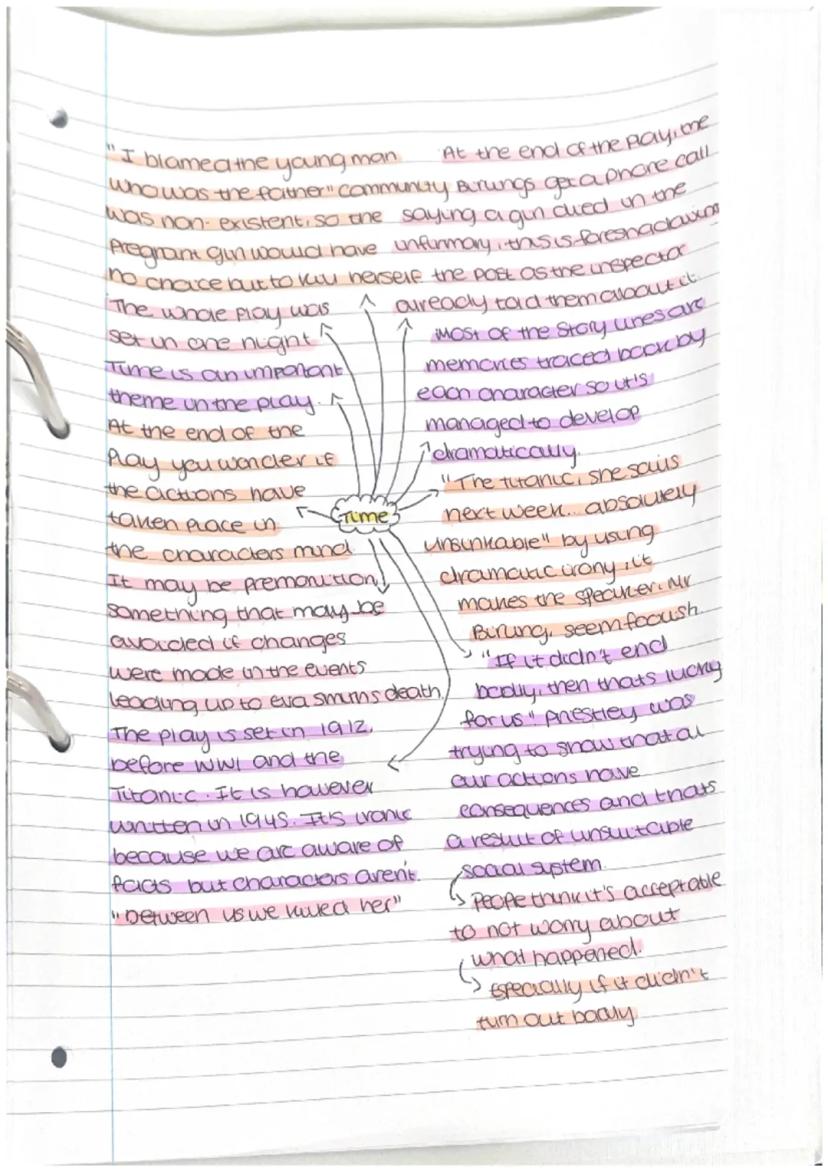 "I blamed the young man
who was the father" community
was non-existent, so the
pregnant girl would have
no choice but to kill herself
The whole play was
set in one night
Time is an important
theme in the play.
At the end of the
play you wonder if
the actions have
taken place in
the characters mind
It may be premonition,
something that may be
avoided if changes
were made in the events
leading up to eva smiths death
The play is set in 1912,
before WW1 and the
Titanic. It is however
written in 1945. It is ironic
because we are aware of
facts but characters aren't.
"between us we killed her"
Time
At the end of the play, the
Birlings get a phone call
saying a girl died in the
infirmary, this is foreshadowing
the post as the inspector
already told them about it.
Most of the story lines are
memories traced back by
each character so it's
managed to develop
dramatically
"The titanic, she sails
next week... absolutely
unsinkable" by using
dramatic irony, it
makes the speaker, Mr
Birling, seem foolish.
"If it didn't end
badly, then thats lucky
for us". Priestley was
trying to show that al
our actions have
consequences and thats
a result of unsuitable
social system.
People think it's acceptable
to not worry about
what happened.
Especially if it didn't
turn out badly